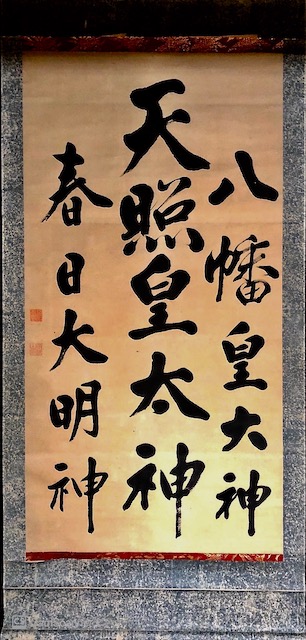 八幡皇大神
天照皇太神
春日大明神